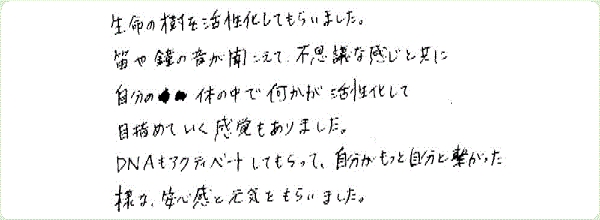 生命の樹を活性化してもらいました。
笛や鐘の音が聞こえて、不思議な感じと共に
自分の 体の中で何かが活性化して
目指めていく感覚もありました。
DNAもアクティベートしてもらって、自分がもっと自分と繋がった
様な、安心感と元気をもらいました。